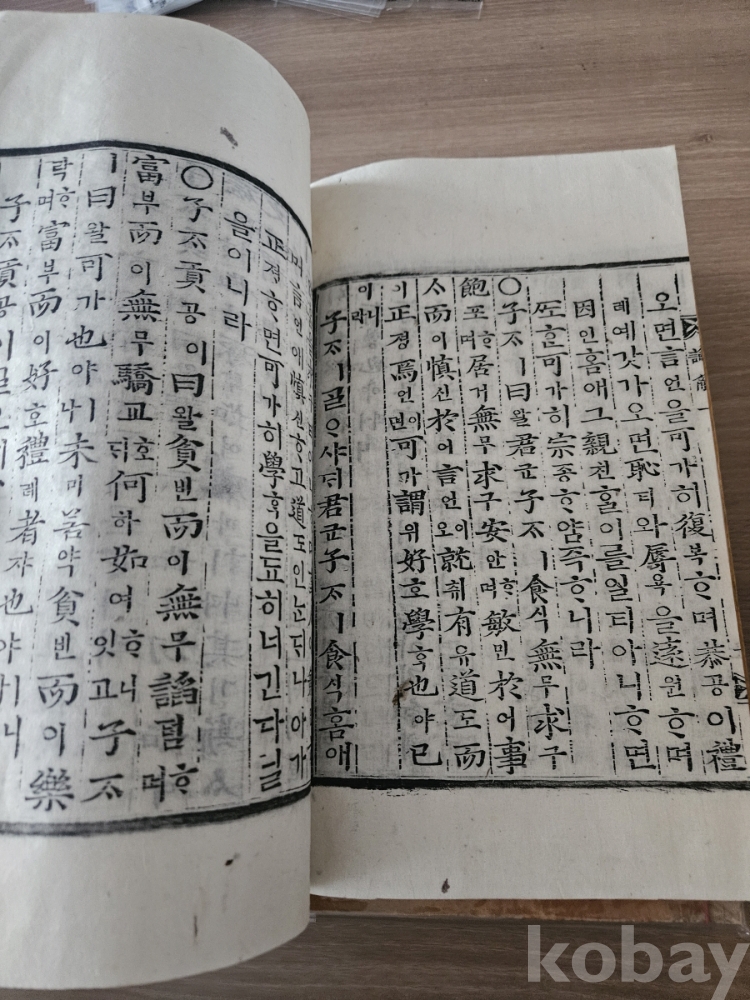 오면言언을可가히復복ᄒᆞ며恭공이禮
례예갓가오면恥티와辱욕을遠원ᄒᆞ며
因인홈애그親친ᄒᆞᆯ이를일티아니ᄒᆞ면
ᄯᅩᄒᆞᆫ可가히宗종ᄒᆞ얌즉ᄒᆞ니라
○子ᄌᆞㅣ曰왈君군子ᄌᆞㅣ食식無무求구
飽포ᄒᆞ며居거無무求구安안ᄒᆞ며敏민於어事
ᄉᆞ而이愼신於어言언이오就취有유道도而
이正졍焉언이면可가謂위好호學ᄒᆞᆨ也야已
이니라
子ᄌᆞㅣᄀᆞᆯᄋᆞ샤ᄃᆡ君군子ᄌᆞㅣ食식홈애
며言언애愼신ᄒᆞ고道도인ᄂᆞᆫᄃᆡ나아가
正졍ᄒᆞ면可가히學ᄒᆞᆨ을됴히너긴다닐
을이니라
○子ᄌᆞ貢공이曰왈貧빈而이無무諂텸ᄒᆞ며
富부而이無무驕교호ᄃᆡ何하如여ᄒᆞ니잇고子ᄌᆞ
ㅣ曰왈可가也야ㅣ나未미若약貧빈而이樂
락ᄒᆞ며富부而이好호禮례者쟈也야ㅣ니
子ᄌᆞ貢공이
kobay